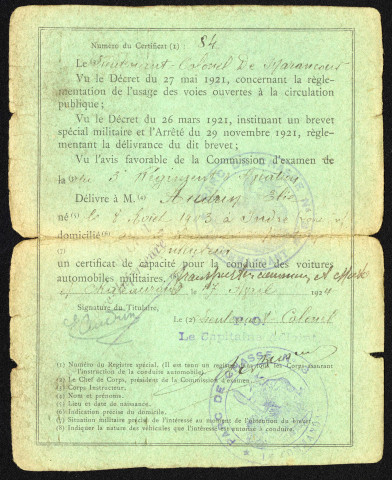 Numéro du Certificat (1) : 84
Le Lieutenant-Colonel De Marancour
Vu le Décret du 27 mai 1921, concernant la règle-
mentation de l'usage des voies ouvertes à la circulation
publique ;
Vu le Décret du 26 mars 1921, instituant un brevet
spécial militaire et l'Arrêté du 29 novembre 1921, règle-
mentant la délivrance du dit brevet ;
Vu l'avis favorable de la Commission d'examen de
la (3) du 3e Régiment d'Aviation
Délivre à M. (4)
né (5) le 8 1903 à
domicilié (6)
(7)
un certificat de capacité pour la conduite des voitures
automobiles militaires,
Châteauroux le 17 Avril 1924
Signature du Titulaire,
Le (2) Lieutenant-Colonel
P.O.
Le Capitaine
(1) Numéro du Registre spécial. (Il est tenu un registre dans tous les Corps assurant
l'instruction de la conduite automobile).
(2) Le Chef de Corps, président de la Commission d'examen.
(3) Corps Instructeur.
(4) Nom et prénoms.
(5) Lieu et date de naissance.
(6) Indication précise du domicile.
(7) Situation militaire précise de l'intéressé au moment de l'obtention du brevet.
(8) Indiquer la nature des véhicules que l'intéressé est autorisé à conduire.
PARC DE CHASSE